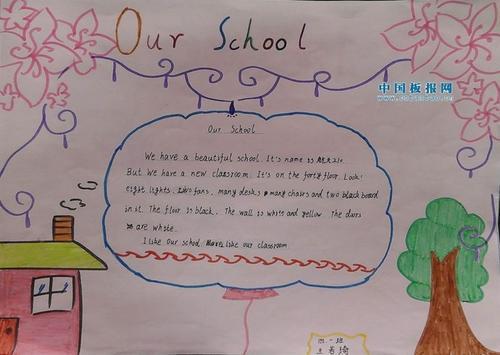 Our School
中国板报网
Our School
We have a beautiful school. It's name is
But We have a new classroom. It's on the forty floor. Look!
eight lights, two fans, many desks many chairs and two black board
in it. The floor is black. The wall is white and yellow. The dars
are white.
I like Our school. like our classroom
四·一班